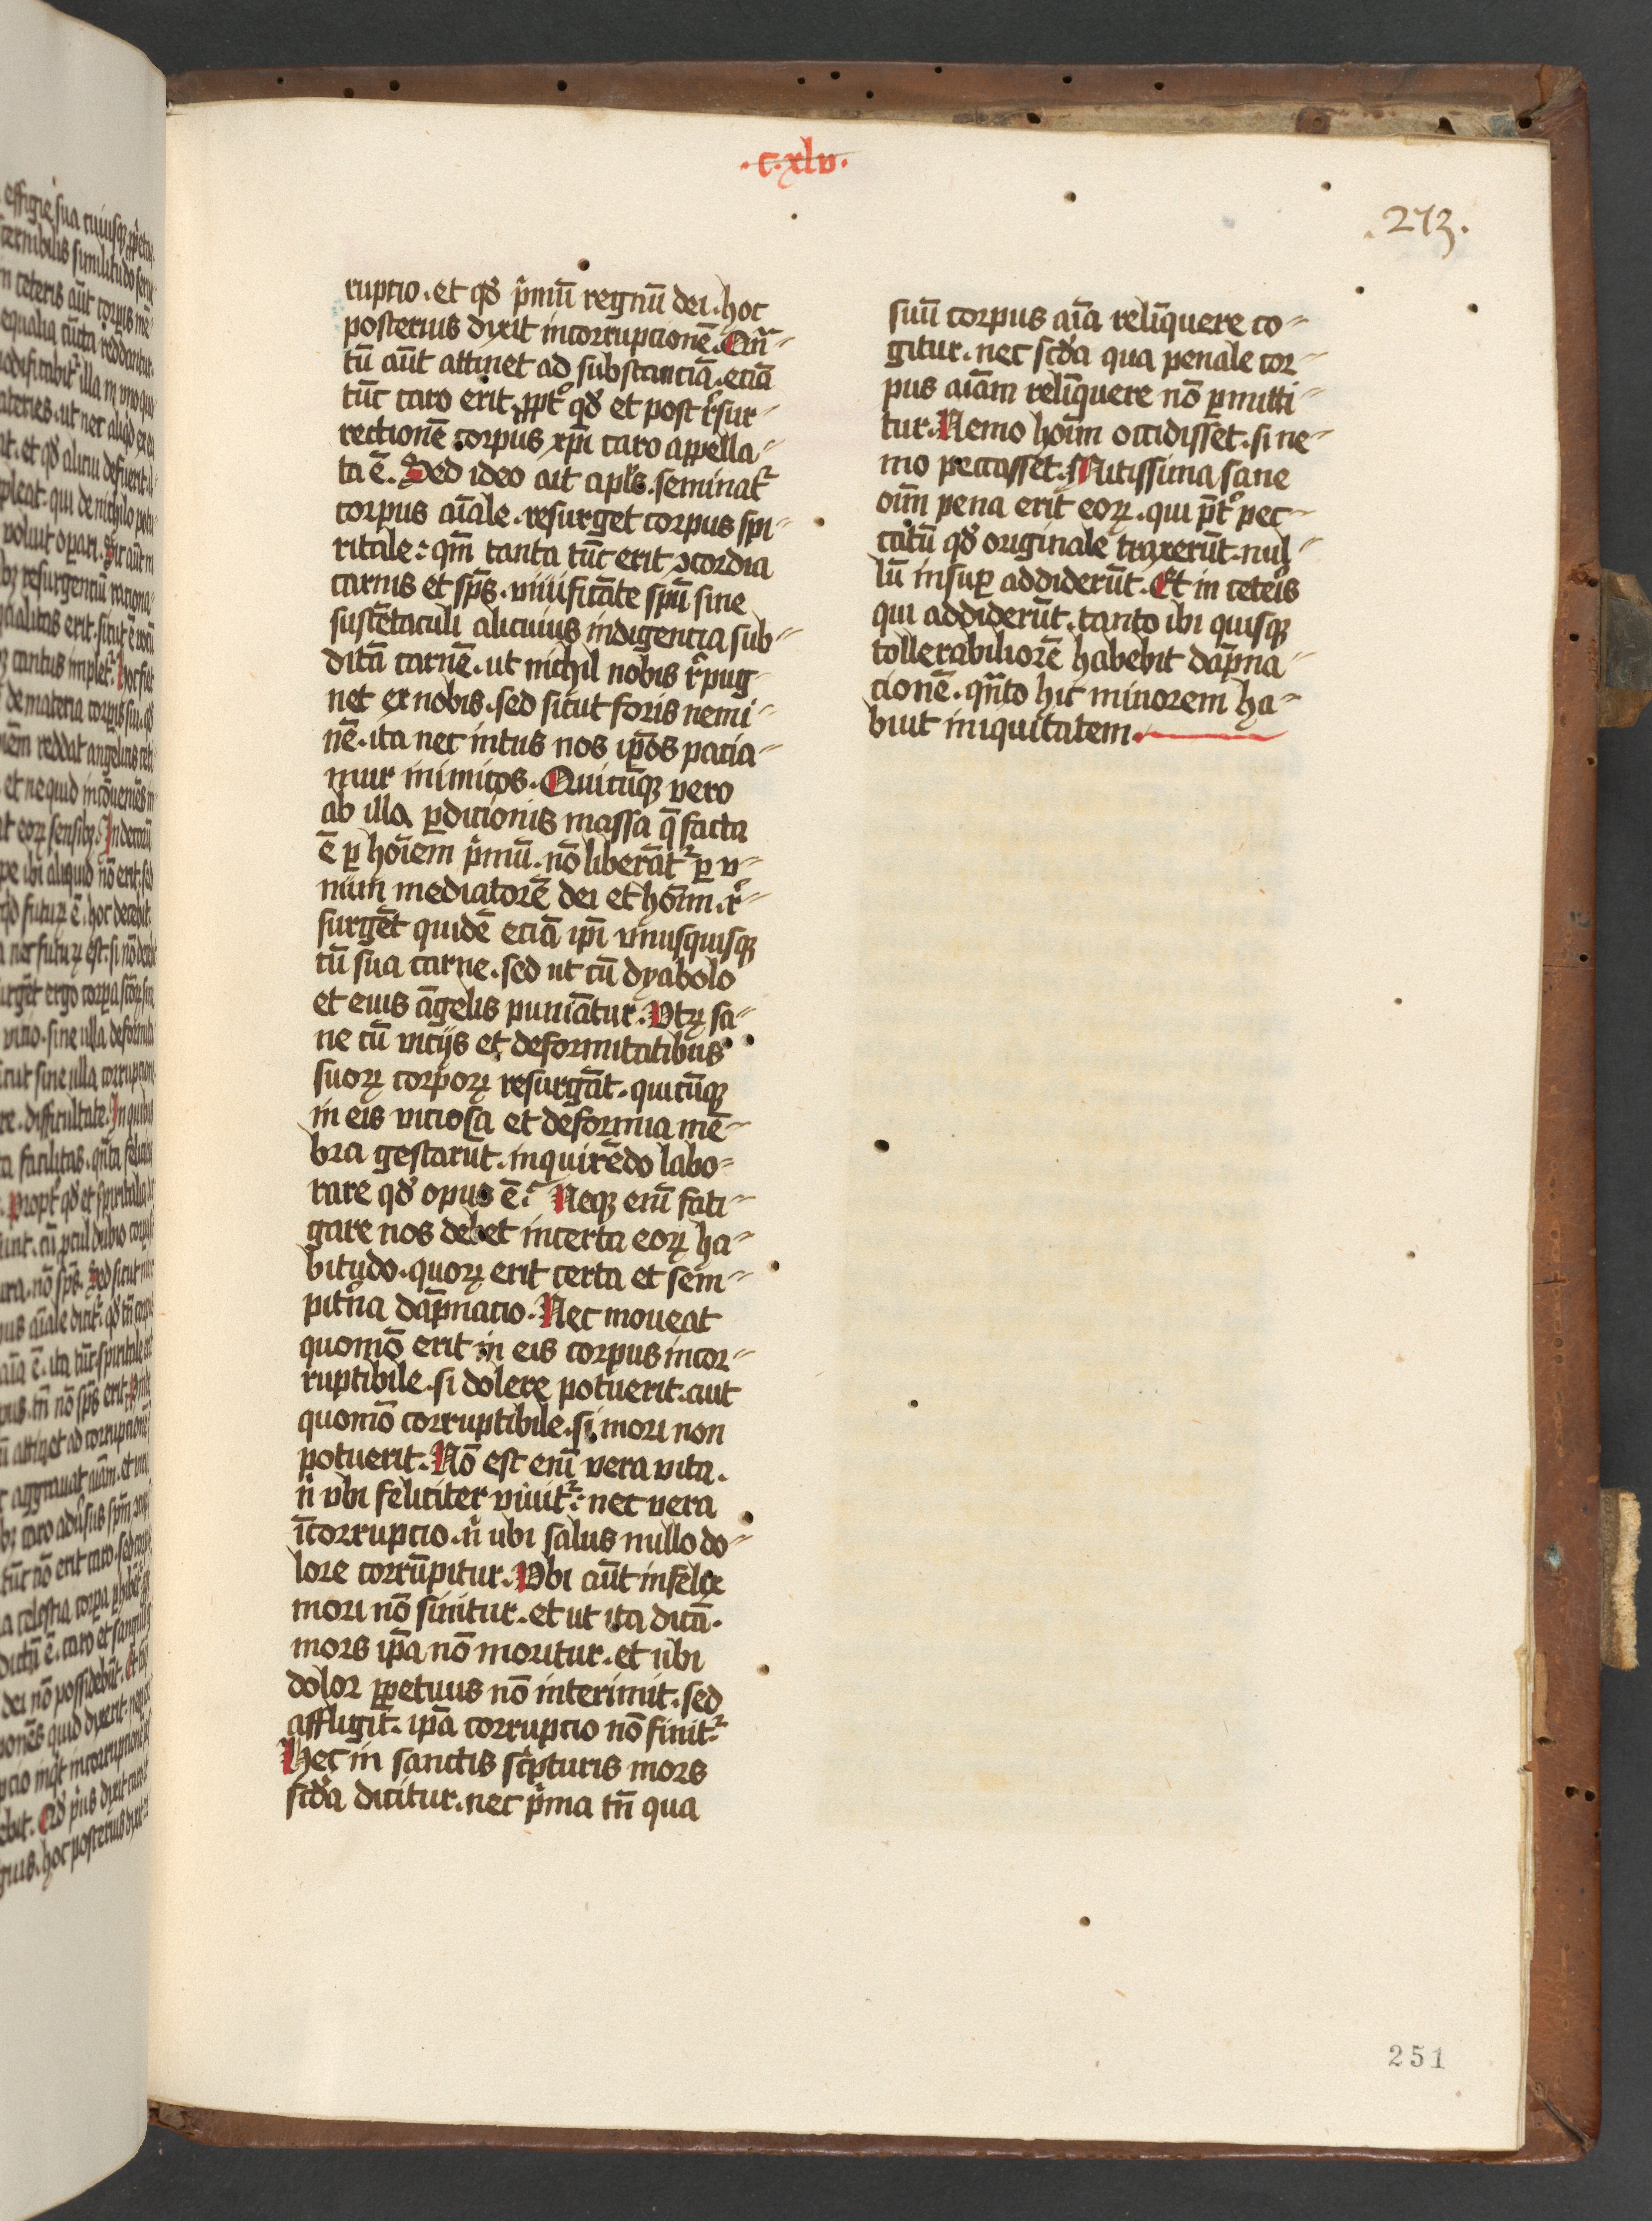 .c.xlv.
.273.
ruptio. et qđ p̄mū regnū dei. hoc
posterius dixit incorrupcionē. Qn̄-
tū aūt attinet ad substanciā. eciā
tūc caro erit. ꝓpt̾ qđ et post r̄sur-
rectionē corpus xp̄i caro appella-
ta ē. Sed ideo ait apl̄s. seminat᷑
corpus aīale. resurget corpus spi-
ritale: qm̄ tanta tūc erit ꝯcordia
carnis et sp̄s. viuificāte spū sine
sustētaculi alicuius indigencia sub-
ditā carnē. ut nichil nobis r̄pug-
net ex nobis. sed sicut foris nemi-
nē. ita nec intus nos ip̄os pacia-
mur inimicos. Quicūqꝫ vero
ab illa ꝑdicionis massa q̄ facta
ē ꝑ hoīem p̄mū. nō liberāt᷑ ꝑ v-
num mediatorē dei et hoīm. r̄-
surgēt quidē eciā ip̄i vnusquisqꝫ
cū sua carne. sed ut cū dyabolo
et eius āgelis puniātur. Vtꝝ sa-
ne cū vicijs et deformitatibus
suoꝝ corpoꝝ resurgāt. quicūqꝫ
in eis viciosa et deformia mē-
bra gestarūt. inquirēdo labo-
rare qđ opus ē? Neqꝫ enī fati-
gare nos debet incerta eoꝝ ha-
bitudo. quoꝝ erit certa et sem-
pit̾na dāpnacio. Nec moueat
quomō erit in eis corpus incor-
ruptibile. si dolere potuerit. aut
quomō corruptibile. si mori non
potuerit. Nō est enī vera vita.
n̄ vbi feliciter viuit᷑: nec vera
īcorrupcio. n̄ ubi salus nullo do-
lore corrūpitur. Vbi aūt infelix
mori nō sinitur. et ut ita dicā.
mors ip̄a nō moritur. et ubi
dolor ꝑpetuus nō interimit. sed
affligit. ip̄a corrupcio nō finit᷑
Hec in sanctis sc̄pturis mors
scđa dicitur. nec p̄ma tn̄ qua
suū corpus aīa relīquere co-
gitur. nec scđa qua penale cor-
pus aīam relīquere nō ꝑmitti-
tur. Nemo hoīm occidisset. si ne-
mo peccasset. Mitissima sane
oīm pena erit eoꝝ. qui p̄t̾ pec-
catū qđ originale traxerūt. nul-
lū insuꝑ addiderūt. Et in ceteris
qui addiderūt. tanto ibi quisqꝫ
tollerabiliorē habebit dāpna-
cionē. qn̄to hic minorem ha-
buit iniquitatem.
251